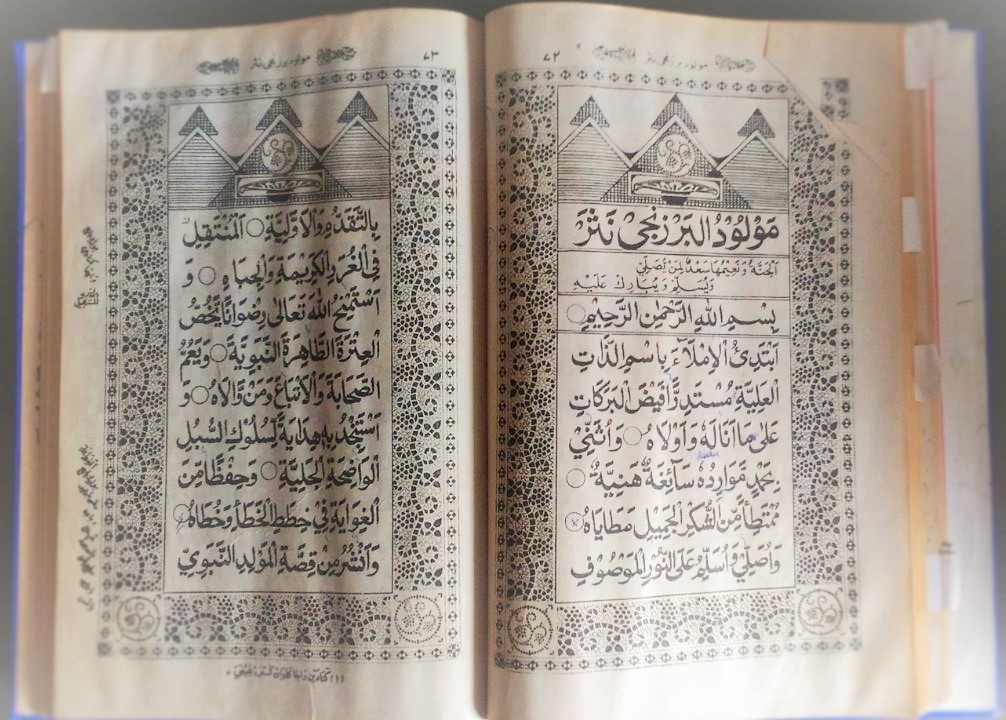 ٧٢
مولود برزنجي نثر
مَوْلُوْدُ الْبَرْزَنْجِيْ نَثَرْ
اَلْجَنَّةُ وَنَعِيْمُهَا سَعْدٌ لِمَنْ يُصَلِّيْ
وَيُسَلِّمُ وَيُبَارِكُ عَلَيْهِ
بِسْمِ اللهِ الرَّحْمٰنِ الرَّحِيْمِ
اَبْتَدِئُ الْاِمْلَآءَ بِاسْمِ الذَّاتِ
الْعَلِيَّةِ مُسْتَدِرًّا فَيْضَ الْبَرَكَاتِ
عَلٰى مَا اَنَالَهُ وَاَوْلَاهُ وَاُثَنِّيْ
بِحَمْدٍ مَوَارِدُهُ سَآئِغَةٌ هَنِيَّةٌ
مُمْتَطِأً مِّنَ الشُّكْرِ الْجَمِيْلِ مَطَايَاهُ
وَاُصَلِّيْ وَاُسَلِّمُ عَلَى النُّوْرِ الْمَوْصُوْفِ
٧٣
مولود برزنجي نثر
بِالتَّقَدُّمِ وَالْاَوَّلِيَّةِ اَلْمُنْتَقِلِ
فِي الْغُرَرِ الْكَرِيْمَةِ وَالْجِبَاهِ وَ
اَسْتَمْنِحُ اللهَ تَعَالٰى رِضْوَانًا يَخُصُّ
الْعِتْرَةَ الطَّاهِرَةَ النَّبَوِيَّةَ وَيَعُمُّ
الصَّحَابَةَ وَالْاَتْبَاعَ وَمَنْ وَّالَاهُ وَ
اَسْتَجْدِيْهِ هِدَايَةً لِسُلُوْكِ السُّبُلِ
الْوَاضِحَةِ الْجَلِيَّةِ وَحِفْظًا مِّنَ
الْغَوَايَةِ فِيْ خِطَطِ الْخَطَأِ وَخُطَاهُ
وَاَنْشُرُ مِنْ قِصَّةِ الْمَوْلِدِ النَّبَوِيِّ